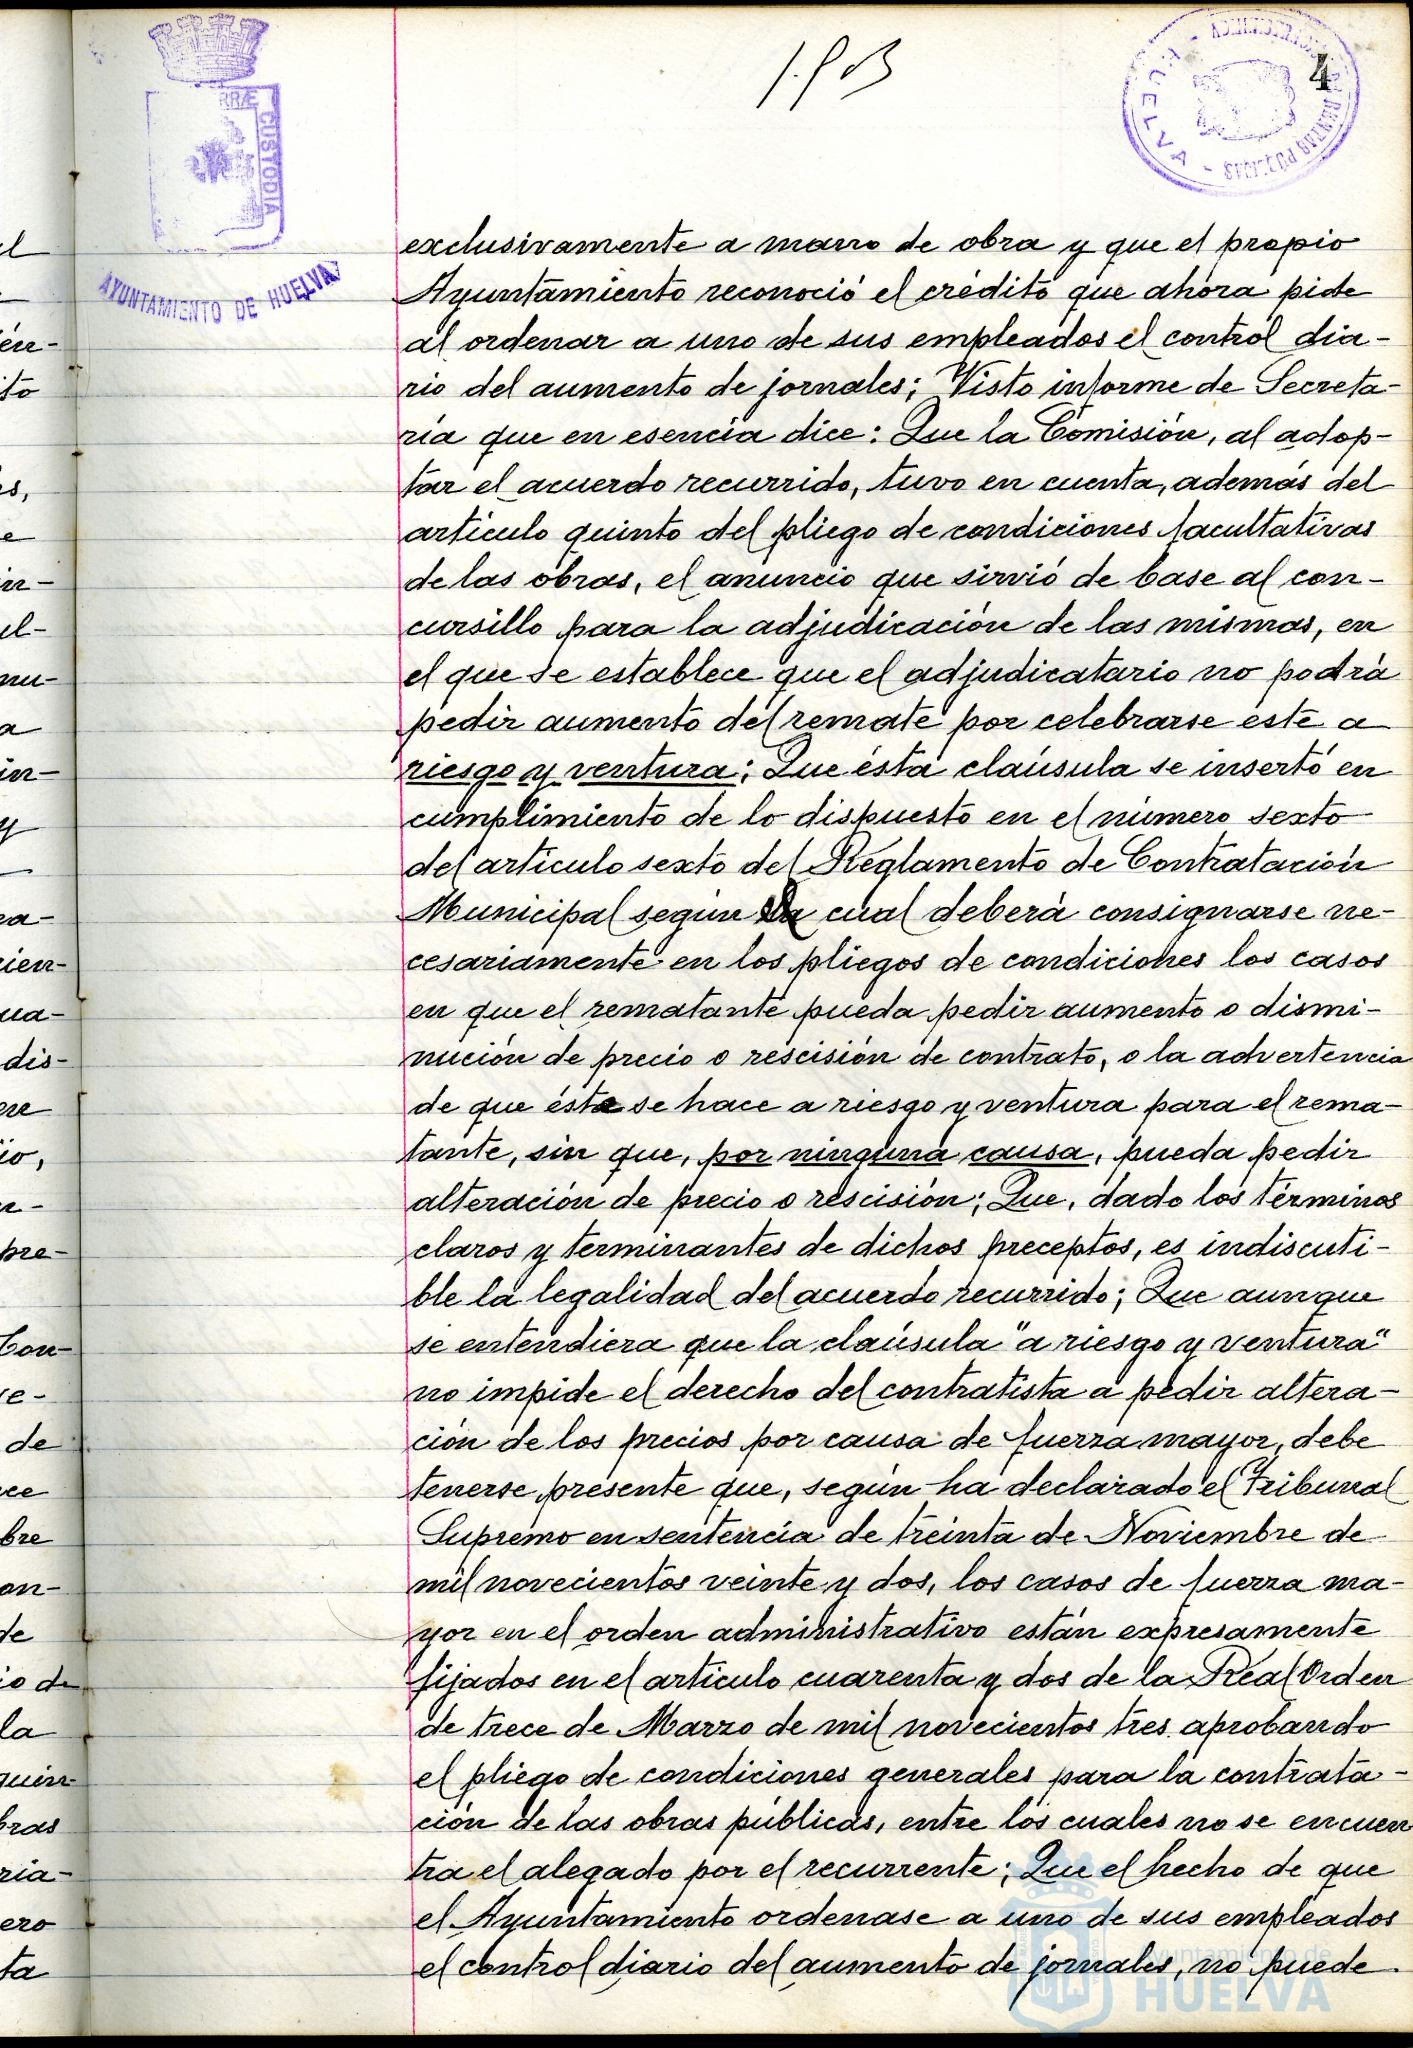 4
RRÆ CUSTODIA
AYUNTAMIENTO DE HUELVA
HUELVA
exclusivamente a mano de obra y que el propio
Ayuntamiento reconoció el crédito que ahora pide
al ordenar a uno de sus empleados el control dia-
rio del aumento de jornales; Visto informe de Secreta-
ría que en esencia dice: Que la Comisión, al adop-
tar el acuerdo recurrido, tuvo en cuenta, además del
artículo quinto del pliego de condiciones facultativas
de las obras, el anuncio que sirvió de base al con-
cursillo para la adjudicación de las mismas, en
el que se establece que el adjudicatario no podrá
pedir aumento del remate por celebrarse éste a
riesgo y ventura; Que ésta claúsula se insertó en
cumplimiento de lo dispuesto en el número sexto
del artículo sexto del Reglamento de Contratación
Municipal según la cual deberá consignarse ne-
cesariamente en los pliegos de condiciones los casos
en que el rematante pueda pedir aumento o dismi-
nución de precio o rescisión de contrato, o la advertencia
de que éste se hace a riesgo y ventura para el rema-
tante, sin que, por ninguna causa, pueda pedir
alteración de precio o rescisión; Que, dado los términos
claros y terminantes de dichos preceptos, es indiscuti-
ble la legalidad del acuerdo recurrido; Que aunque
se entendiera que la claúsula "a riesgo y ventura"
no impide el derecho del contratista a pedir altera-
ción de los precios por causa de fuerza mayor, debe
tenerse presente que, según ha declarado el Tribunal
Supremo en sentencia de treinta de Noviembre de
mil novecientos veinte y dos, los casos de fuerza ma-
yor en el orden administrativo están expresamente
fijados en el artículo cuarenta y dos de la Real Orden
de trece de Marzo de mil novecientos tres aprobando
el pliego de condiciones generales para la contrata-
ción de las obras públicas, entre los cuales no se encuen
tra el alegado por el recurrente; Que el hecho de que
el Ayuntamiento ordenase a uno de sus empleados
el control diario del aumento de jornales, no puede
Ayuntamiento de
HUELVA